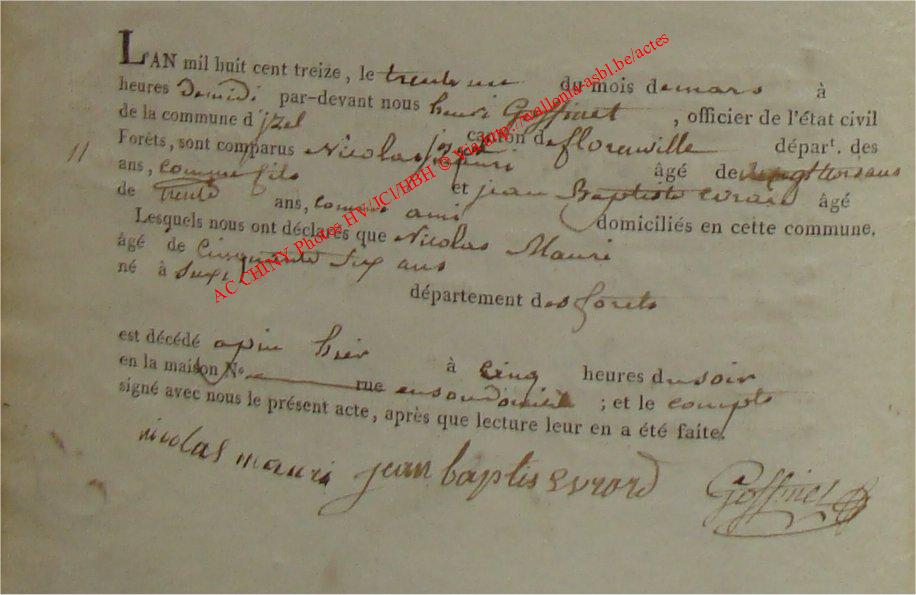 LAN mil huit cent treize, le trente une du mois de mars à
heures de midi par-devant nous henri Goffinet, officier de l'état civil
de la commune d'izel canton de florenville départ. des
11 Forêts, sont comparus Nicolas mauri âgé de vingt trois ans
ans, comme fils et jean Baptiste evrard âgé
de trente ans, comme ami domiciliés en cette commune,
Lesquels nous ont déclarés que Nicolas Mauri
âgé de Cinquante Six ans
né à Suxi département des forets
est décédé hier à Cinq heures du soir
en la maison N° rue en son domicile ; et le
signé avec nous le présent acte, après que lecture leur en a été faite.
nicolas mauri jean baptis Evrard Goffinet
AC CHINY Photos HV/JCI/HBH © Via http://wallonia-asbl.be/actes